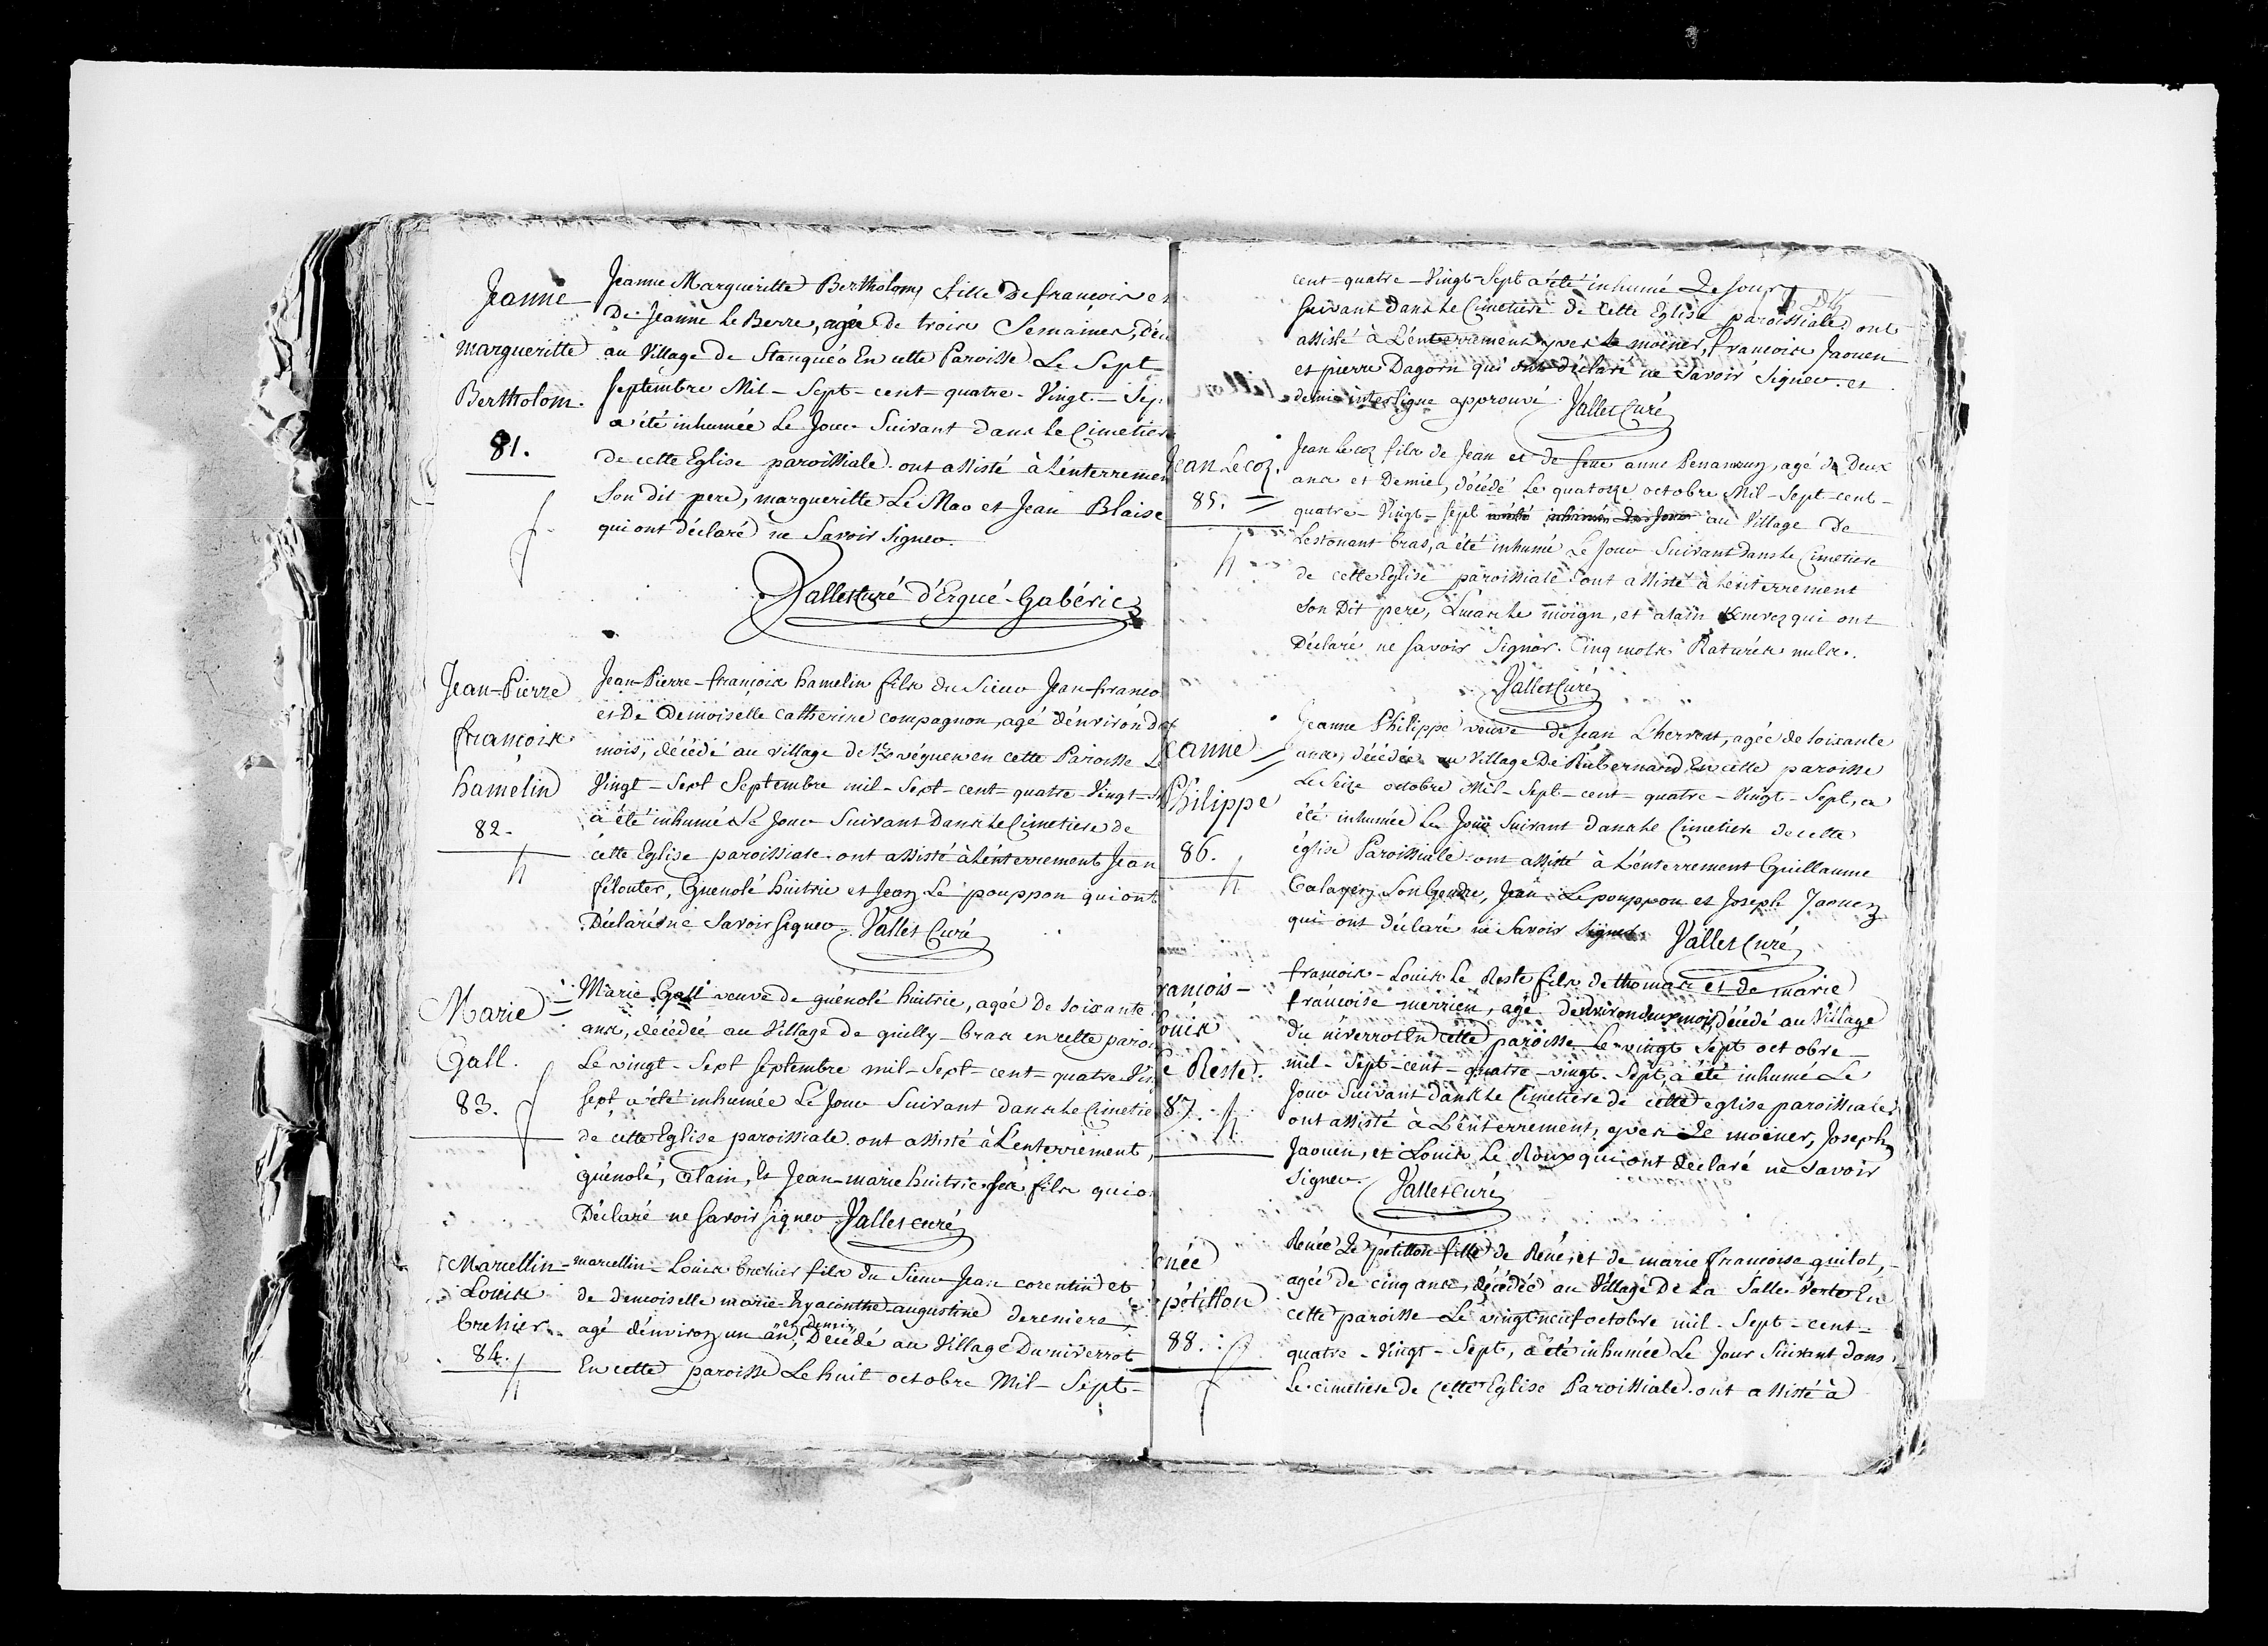 Jeanne
margueritte
Bertholom.
81.
Jeanne Margueritte Bertholom, fille de francois et
De Jeanne le Berre, agée de trois Semaines, déc
au Village de Stanquéo En cette Paroisse Le Sept
septembre Mil-Sept-cent-quatre-Vingt-Sep
a été inhumée Le Jour Suivant dans le Cimetiere
de cette Eglise paroissiale. ont assisté à L'énterremen
Son dit pere, margueritte Le Mao et Jean Blaise
qui ont déclaré ne Savoir Signer.
Vallet Curé d'Ergué-Gabéric
Jean-Pierre
françois
hamélin
82.
Jean-Pierre-françois hamelin fils du Sieur Jean-franco
et De Demoiselle catherine compagnon, agé d'énvirón d
mois, décédé au village de Kvéguen en cette Paroisse L
Vingt-Sept Septembre mil-Sept-cent-quatre-Vingt-S
a été inhumé Le Jour Suivant Dans le Cimetiere de
cette Eglise paroissiale. ont assisté à L'énterrement Jean
félouter, Guenolé huitric et Jean Le pouppon qui ont
Déclaré ne Savoir Signer. Vallet Curé
Marie
Gall.
83.
Marie Gall veuve de guénolé huitric, agée de soixante
ans, décédée au Village de quilly-bras en cette paroi
Le vingt-Sept septembre mil-Sept-cent-quatre-Vin
sept a été inhumée Le Jour Suivant dans le Cimetie
de cette Eglise paroissiale. ont assisté à L'enterrement,
guénolé, alain, et Jean-marie huitric ses fils qui o
Déclaré ne Savoir signer Vallet curé
Marcellin-
Louis
brehier.
84.
marcellin-Louis brehier fils du Sieur Jean corentin et
de demoiselle marie-hyacinthe-augustine dereniere,
et demie
agé d'environ un an, Décédé au Village Du niverrot
En cette paroisse Le huit octobre Mil-Sept-
cent-quatre-Vingt-Sept a été inhumé Le Jour
Suivant dans le Cimetiere de cette Eglise paroissiale. ont
assisté à L'énterrement yves le moëner, francois Jaouen
et pierre Dagorn qui ont déclaré ne Savoir Signer. et
demie interligne approuvé. Vallet Curé
Jean Le coz.
85.
Jean Le coz fils de Jean et de feue anne Penanrun, agé de Deux
ans et Demie, décédé Le quatorze octobre Mil-Sept-cent-
quatre-Vingt-Sept a été inhumé Le Jour au Village de
Lestonant bras, a été inhumé Le Jour Suivant Dans le Cimetiere
de cette Eglise paroissiale. ont assisté à L'énterrement
Son Dit pere, Le moign, et alain qui ont
Déclaré ne Savoir Signer. Cinq mots Raturés nuls.
Vallet Curé
eanne
Philippe
86.
Jeanne Philippe veuve de Jean L'hervent, agée de soixante
ans, décédée au Village De Rubernard En cette paroisse
Le Seize octobre Mil-Sept-cent-quatre-Vingt-Sept, a
été inhumée Le Jour Suivant dans le Cimetiere de cette
église Paroissiale. ont assisté à L'énterrement Guillaume
Calapez Son Gendre, Jean Le pouppon et Joseph Jaouen
qui ont déclaré ne Savoir Signer. Vallet Curé
rançois-
ouis
e Reste.
87.
francois-Louis Le Reste fils de thomas et de marie
francoise merrien, agé d'environ deux mois, décédé au Village
du niverrot En cette paroisse Le vingt Sept octobre
mil-Sept-cent-quatre-vingt-Sept, a été inhumé Le
Jour Suivant Dans le Cimetiere de cette eglise paroissiale,
ont assisté à L'énterrement, yves Le moëner, Joseph
Jaouen, et Louis Le Roux qui ont déclaré ne Savoir
Signer. Vallet Curé
enée
pétillon
88.
Renée Le pétillon fille de René, et de marie francoise quilot,
agée de cinq ans, décédée au Village De La Salle Verte En
cette paroisse Le vingt neuf octobre mil-Sept-cent-
quatre-Vingt-Sept, a été inhumée Le Jour Suivant dans
Le cimetiere de cette Eglise Paroissiale. ont assisté à